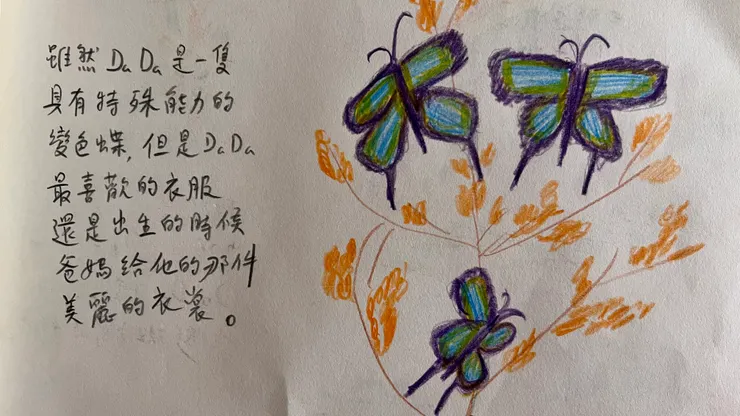 雖然 DaDa 是一隻
具有特殊能力的
變色蝶,但是 DaDa
最喜歡的衣服
還是出生的時候
爸媽給他的那件
美麗的衣裳。